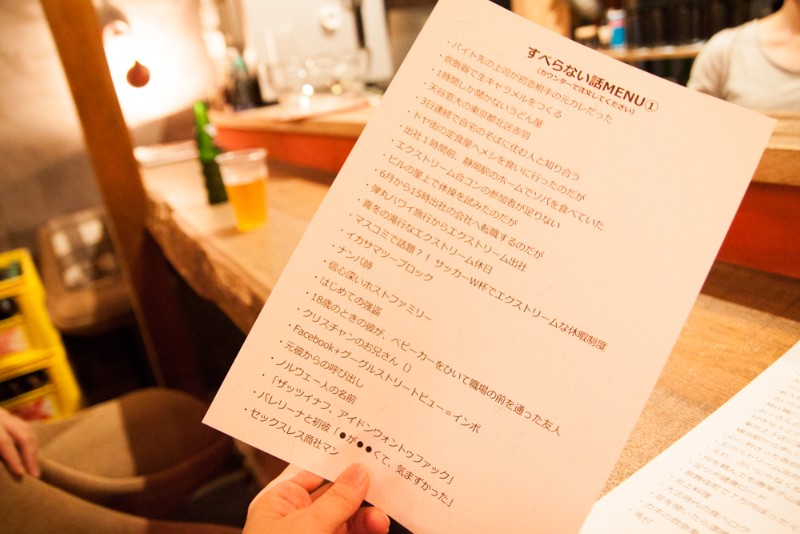 すべらない話MENU①
(カウンターで注文してください)
・バイト先の上司が初恋相手の元カレだった
・炊飯器で生キャラメルをつくる
・1時間しか開かないうどん屋
・天谷窓大の東京都北区赤羽
・3日連続で自宅のそばに住む人と知り合う
・ドヤ街の定食屋へメシを食いに行ったのだが
・出社1時間前、静岡駅のホームでソバを食べていた
・エクストリーム合コンの参加者が足りない
・ビルの屋上で体操を試みたのだが
・6月から15時出社の会社へ転職するのだが
・弾丸ハワイ旅行からエクストリーム出社
・真冬の滝行なエクストリーム休日
・マスコミで話題?! サッカーW杯でエクストリームな休暇制度
・イカサマツーブロック
・ナンパ師
・信心深いホストファミリー
・はじめての強盗
・18歳のときの彼が、ベビーカーをひいて職場の前を通った友人
・クリスチャンのお兄さん()
・Facebook+グーグルストリートビュー=インポ
・元彼からの呼び出し
・ノルウェー人の名前
・「ザッツイナフ、アイドンウォントゥファック」
・バレリーナと初彼「●が●●くて、気まずかった」
・セックスレス商社マン